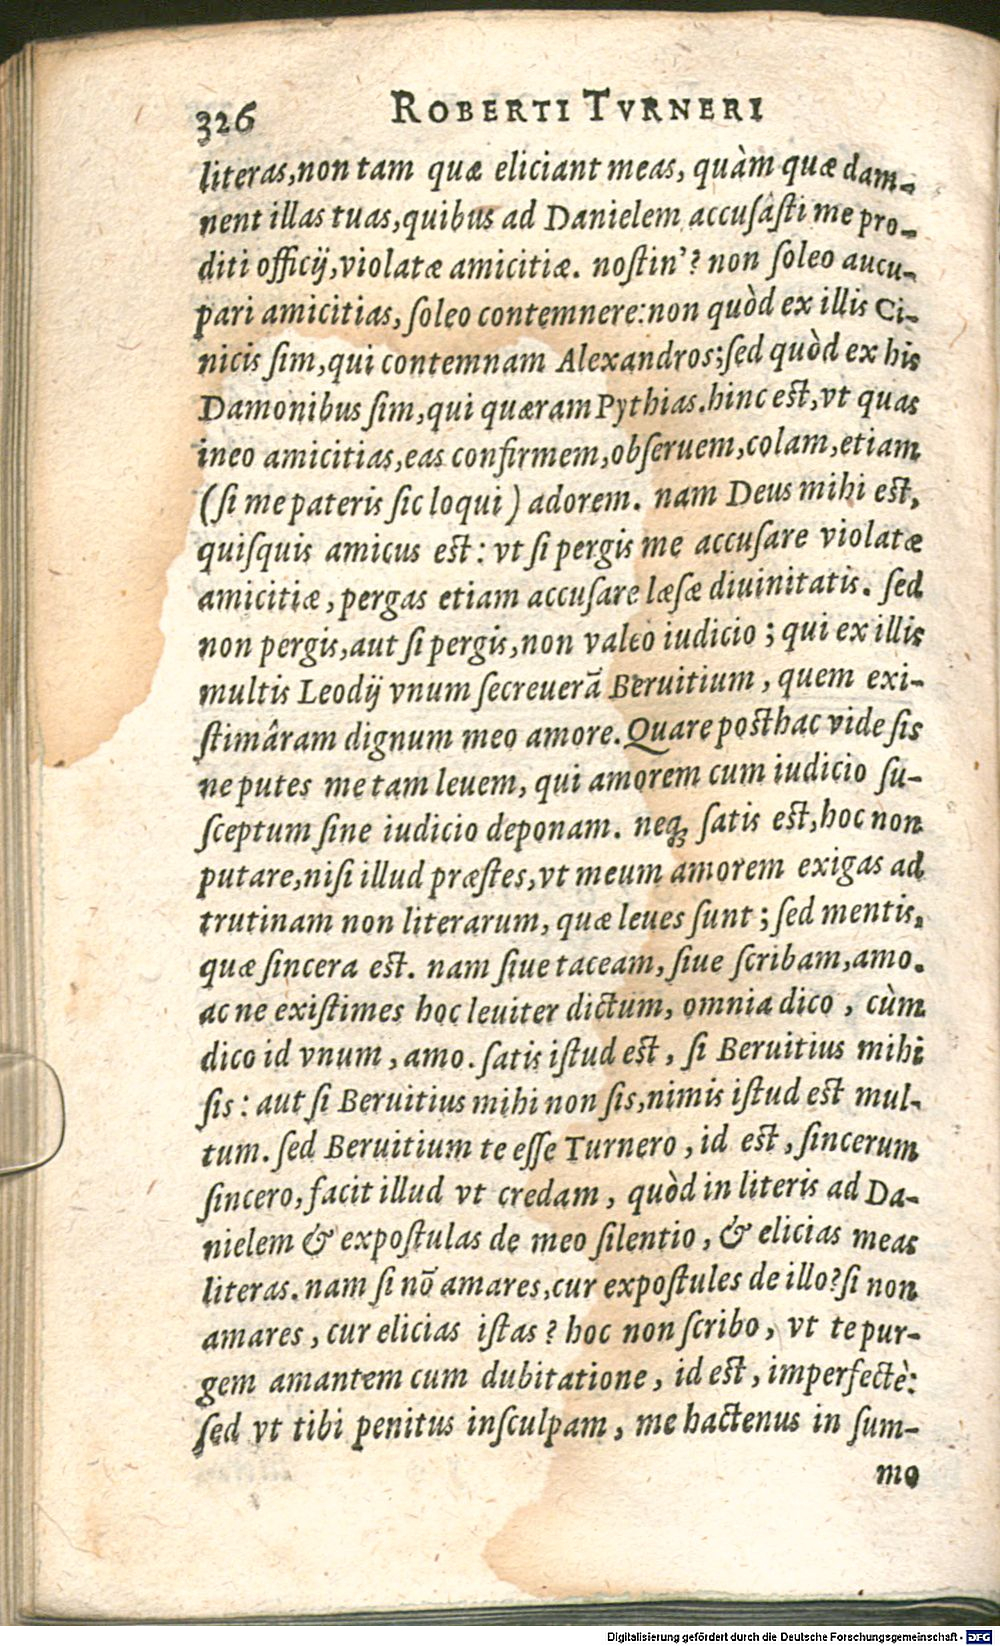 326 ROBERTI TVRNERI
literas, non tam quæ eliciant meas, quàm quæ dam-
nent illas tuas, quibus ad Danielem accuſâſti me pro-
diti officij, violatæ amicitiæ. noſtin'? non ſoleo aucu-
pari amicitias, ſoleo contemnere: non quòd ex illis Ci-
nicis ſim, qui contemnam Alexandros; ſed quòd ex his
Damonibus ſim, qui quæram Pythias. hinc eſt, vt quas
ineo amicitias, eas confirmem, obſeruem, colam, etiam
(ſi me pateris ſic loqui) adorem. nam Deus mihi eſt,
quiſquis amicus eſt: vt ſi pergis me accuſare violatæ
amicitiæ, pergas etiam accuſare læſæ diuinitatis. ſed
non pergis, aut ſi pergis, non valeo iudicio; qui ex illis
multis Leodij vnum ſecreuerã Beruitium, quem exi-
ſtimâram dignum meo amore. Quare poſthac vide ſis
ne putes me tam leuem, qui amorem cum iudicio ſu-
ſceptum ſine iudicio deponam. neq; ſatis eſt, hoc non
putare, niſi illud præſtes, vt meum amorem exigas ad
trutinam non literarum, quæ leues ſunt; ſed mentis,
quæ ſincera eſt. nam ſiue taceam, ſiue ſcribam, amo.
ac ne exiſtimes hoc leuiter dictum, omnia dico, cùm
dico id vnum, amo. ſatis iſtud eſt, ſi Beruitius mihi
ſis: aut ſi Beruitius mihi non ſis, nimis iſtud eſt mul-
tum. ſed Beruitium te eſſe Turnero, id eſt, ſincerum
ſincero, facit illud vt credam, quòd in literis ad Da-
nielem & expoſtulas de meo ſilentio, & elicias meas
literas. nam ſi nõ amares, cur expoſtules de illo? ſi non
amares, cur elicias iſtas? hoc non ſcribo, vt te pur-
gem amantem cum dubitatione, id eſt, imperfectè:
ſed vt tibi penitus inſculpam, me hactenus in ſum-
mo
Digitalisierung gefördert durch die Deutsche Forschungsgemeinschaft - DFG